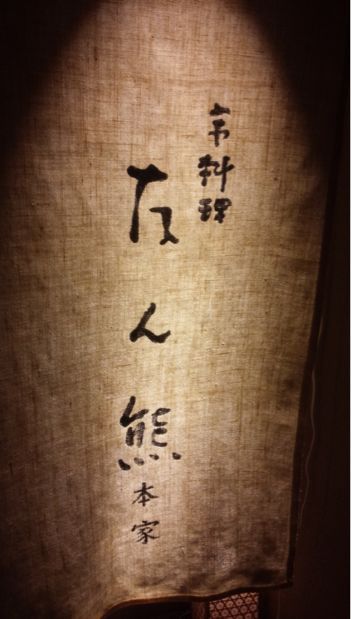 京料理
たん熊本家